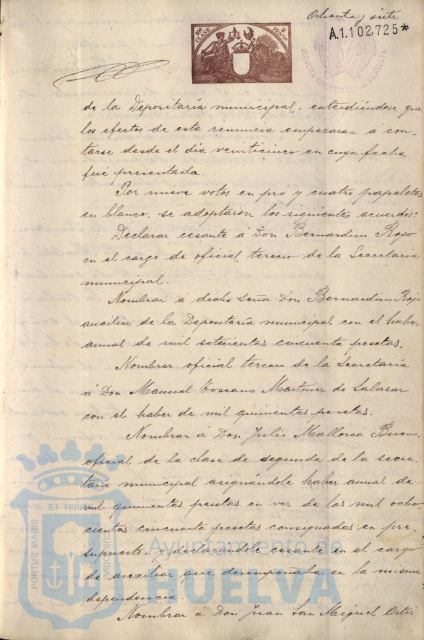 Ochenta y siete
A.1.102.725*
de la Depositaría municipal, entendiéndose que
los efectos de esta renuncia empezaran a con-
tarse desde el dia veinticinco en cuya fecha
fué presentada
Por nueve votos en pró y cuatro papeletas
en blanco, se adoptaron los siguientes acuerdos:
Declarar cesante á Don Bernardino Rojo
en el cargo de oficial tercero de la Secretaria
municipal.
Nombrar á dicho Señor Don Bernardino Rojo
auxiliar de la Depositaría municipal con el haber
anual de mil setecientas cincuenta pesetas.
Nombrar oficial tercero de la Secretaría
á Don Manuel Toscano Martinez de Salazar
con el haber de mil quinientas pesetas.
Nombrar á Don Julio Mallorca
oficial de la clase de segunda de la secre-
taría municipal asignándole haber anual de
mil quinientas pesetas en vez de las mil ocho
cientas cincuenta pesetas consignadas en pre-
supuesto, y declarandole cesante en el cargo
de auxiliar que desempeñaba en la misma
dependencia.
Nombrar á Don Juan San Miguel Ortiz
PORTUS MARIS ET TERRAE CUSTODIA
Ayuntamiento de
HUELVA